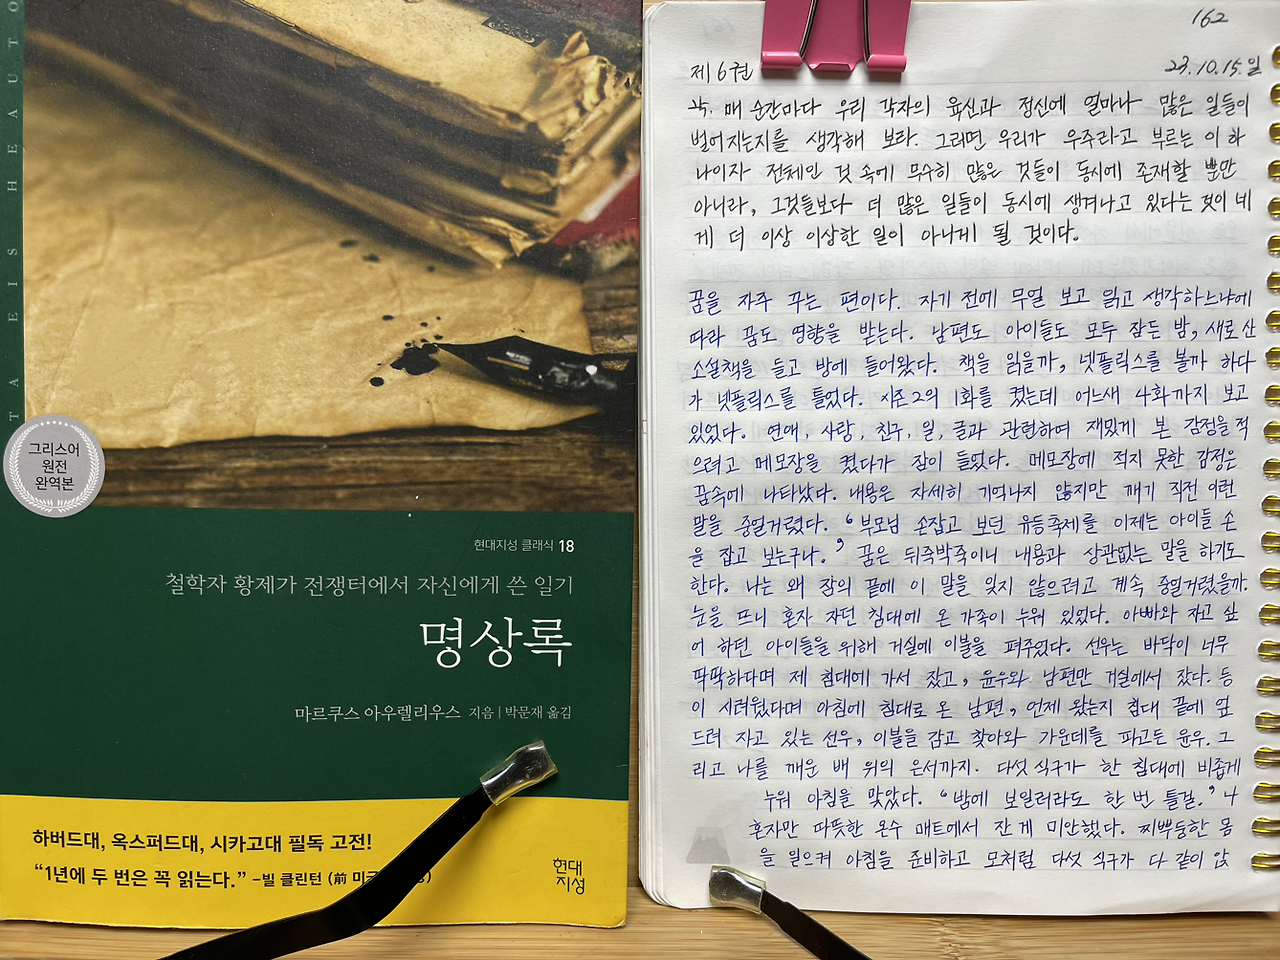 TAEISHEAUTO
그리스어
원전
완역본
현대지성 클래식 18
철학자 황제가 전쟁터에서 자신에게 쓴 일기
명상록
마르쿠스 아우렐리우스 지음 | 박문재 옮김
하버드대, 옥스퍼드대, 시카고대 필독 고전!
“1년에 두 번은 꼭 읽는다.” –빌 클린턴 (前 미국
현대
지성
162
제6권
23.10.15.일
25. 매 순간마다 우리 각자의 육신과 정신에 얼마나 많은 일들이
벌어지는지를 생각해 보라. 그러면 우리가 우주라고 부르는 이 하
나이자 전체인 것 속에 무수히 많은 것들이 동시에 존재할 뿐만
아니라, 그것들보다 더 많은 일들이 동시에 생겨나고 있다는 것이 네
게 더 이상 이상한 일이 아니게 될 것이다.
꿈을 자주 꾸는 편이다. 자기 전에 무얼 보고 읽고 생각하느냐에
따라 꿈도 영향을 받는다. 남편도 아이들도 모두 잠든 밤, 새로 산
소설책을 들고 방에 들어왔다. 책을 읽을까, 넷플릭스를 볼까 하다
가 넷플릭스를 틀었다. 시즌2의 1화를 켰는데 어느새 4화까지 보고
있었다. 연애, 사랑, 친구, 일, 글과 관련하여 재밌게 본 감정을 적
으려고 메모장을 켰다가 잠이 들었다. 메모장에 적지 못한 감정은
꿈속에 나타났다. 내용은 자세히 기억나지 않지만 깨기 직전 이런
말을 중얼거렸다. “부모님 손잡고 보던 유등축제를 이제는 아이들 손
을 잡고 보는구나.” 꿈은 뒤죽박죽이니 내용과 상관없는 말을 하기도
한다. 나는 왜 잠의 끝에 이 말을 잊지 않으려고 계속 중얼거렸을까.
눈을 뜨니 혼자 자던 침대에 온 가족이 누워 있었다. 아빠와 자고 싶
어 하던 아이들을 위해 거실에 이불을 펴주었다. 선우는 바닥이 너무
딱딱하다며 제 침대에 가서 잤고, 윤우와 남편만 거실에서 잤다. 등
이 시려웠다며 아침에 침대로 온 남편, 언제 왔는지 침대 끝에 엎
드려 자고 있는 선우, 이불을 감고 찾아와 가운데를 파고든 윤우. 그
리고 나를 깨운 배 위의 은서까지. 다섯 식구가 한 침대에 비좁게
누워 아침을 맞았다. “밤에 보일러라도 한 번 틀걸.” 나
혼자만 따뜻한 온수 매트에서 잔 게 미안했다. 찌뿌둥한 몸
을 일으켜 아침을 준비하고 모처럼 다섯 식구가 다 같이 앉